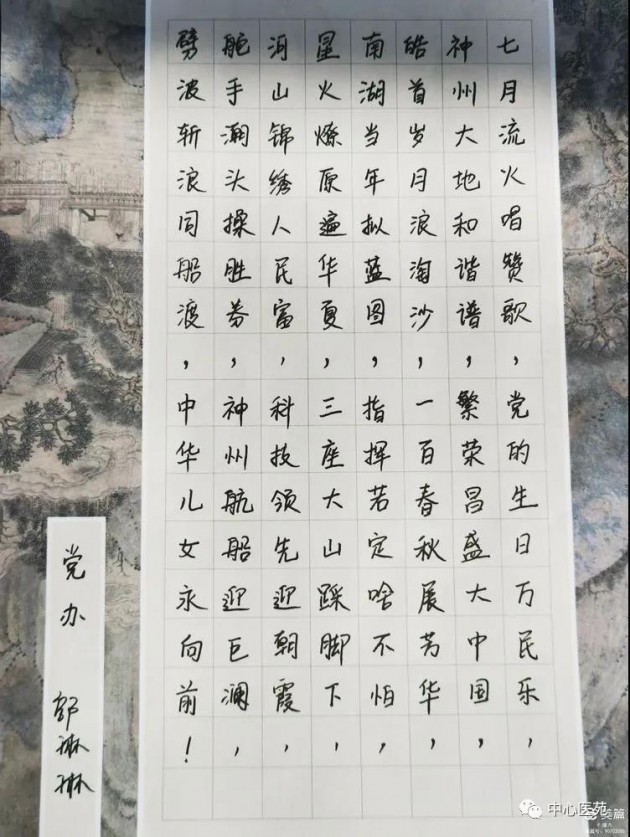 七月流火唱赞歌，党的生日万民乐，
神州大地和谐谱，繁荣昌盛大中国，
皓首岁月浪淘沙，一百春秋展芳华，
南湖当年拟蓝图，指挥若定啥不怕，
星火燎原遍华夏，三座大山踩脚下，
河山锦绣人民富，科技领先迎朝霞，
舵手潮头操胜券，神州航船迎巨澜，
劈波斩浪同船渡，中华儿女永向前！
党办 舒淋淋
中心医苑
美篇